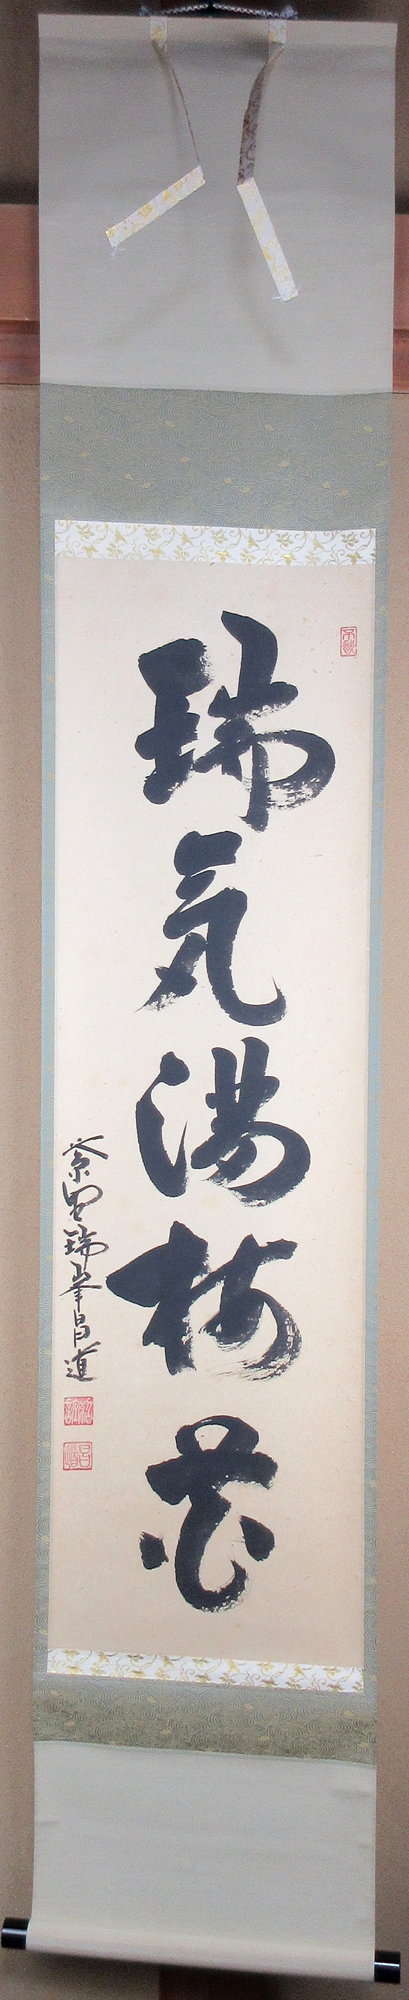 瑞気満梅花
紫野瑞峯昌道